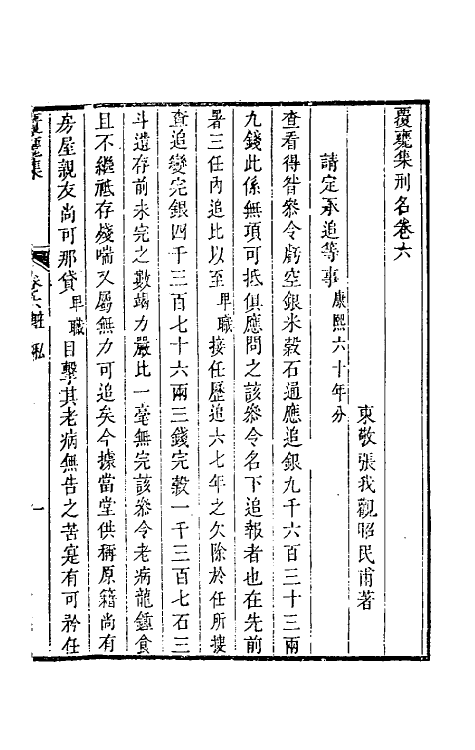 覆甕集刑名卷六
東敬張我觀昭民甫著
請定承追等事康熙六十年分
查看得昝叅令虧空銀米穀石通應追銀九千六百三十三兩
九錢此係無項可抵俱應問之該叅令名下追報者也在先前
署三任內追比以至卑職接任歷追六七年之欠除於任所搜
查追變完銀四千三百七十六兩三錢完穀一千三百七石三
斗遺存前未完之數竭力嚴比一毫無完該叅令老病龍鍾食
且不繼祗存殘喘又屬無力可追矣今據當堂供稱原籍尚有
房屋親友尚可那貸卑職目擊其老病無告之苦寔有可矜任
覆甕集
卷六
私
一